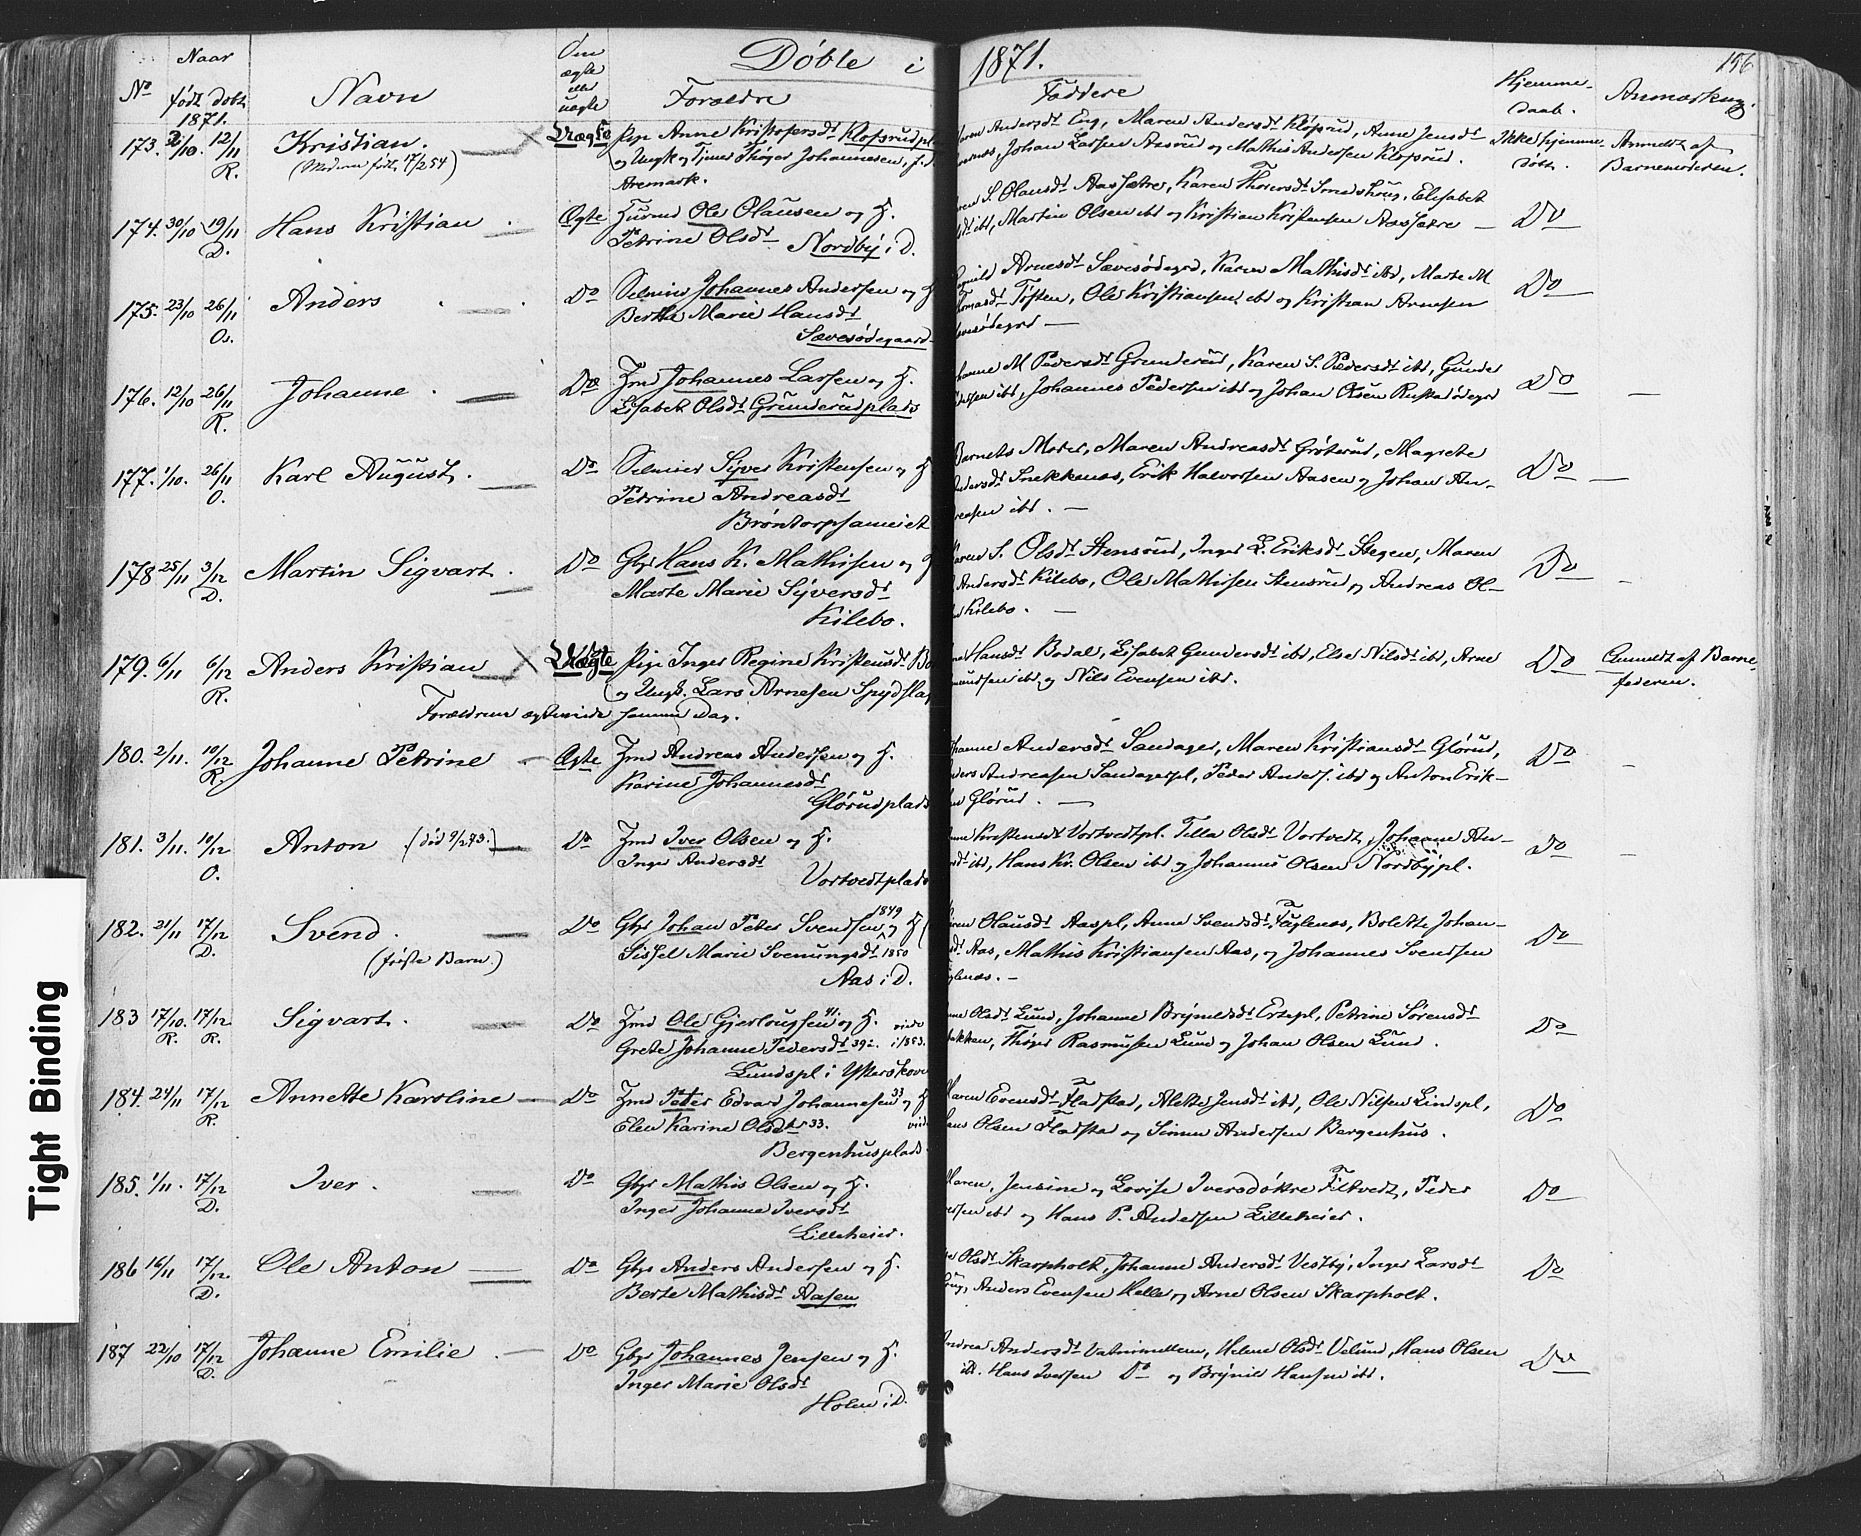 Døbte i 1871.
156
No
Naar
født
døbt
1871.
Navn
Om
ægte
ell.
uægte
Forældre
Faddere
Hjemme-
daab.
Anmærkng.
173. 2/10. 12/11 R. Kristian. Uægte Pige Anne Kristofersdt Klopsrudpl
(Moderen født 17/2 54) og Ungk og Tjener Thøger Johannesen, f. i
Aremark.
Andersdt Eng, Maren Andersdt Klopsrud, Anne Jensdt
Johan Larsen Aasrud og Mathis Andersen Klopsrud.
Ikke hjemme-
døbt.
Anmeldt af
Barnemoderen.
174. 30/10 19/11 D. Hans Kristian. Ægte Husmd Ole Olausen og H.
Petrine Olsdt Nordby i D.
S. Olausdt Aassætre, Karen Thoresdt Smedshaug, Elisabet
ibd, Martin Olsen ibd og Kristian Kristensen Aassætre —
Do
175. 23/10 26/11 Os. Anders Do Selveier Johannes Andersen og H
Berthe Marie Hansdt
Sævesødegaard
Arnesdt Sævesødegrd, Karen Mathisdt ibd, Marte M
Tomasdt Toften, Ole Kristiansen ibd og Kristian Arnesen
Sævesødegrd —
Do
176. 12/10 26/11 R. Johanne. Do Hmd Johannes Larsen og H.
Elisabeth Olsdt Grunderudplads
Johanne M Pedersdt Grunderud, Karen S. Pedersdt ibd, Gunder
ibd, Johannes Pedersen ibd og Johan Olsen Rustadødegrd
Do —
177. 1/10. 26/11 O. Karl August. Do Selveier Syver Kristensen og H
Petrine Andreasdt
Brøntorpsameiet
Barnets Moder, Maren Andreasdt Grøterud, Magrete
Andersdt Snekkenæs, Erik Halvorsen Aasen og Johan An-
dreasen ibd. —
Do —
178 25/11 3/12 D. Martin Sigvart. Do Gbr Hans K. Mathisen og H
Marte Marie Syversdt
Kilebo.
Maren S. Olsdt Stensrud, Inger L. Eriksdt Stegen, Maren
Andersdt Kilebo, Ole Mathisen Stensrud og Andreas Ol-
Kilebo. —
Do —
179. 6/11 6/12 R. Anders Kristian Uægte Pige Inger Regine Kristensdt Bo
og Ungk. Lars Arnesen Spydslag
Forældrene ægteviede samme Dag.
Hansdt Bodal, Elisabet Gundersdt ibd, Else Nilsdt ibd, Arne
ibd og Nils Evensen ibd.
Do
Anmeldt af Barne-
faderen.
180. 2/11. 10/12 R. Johanne Petrine — Ægte Hmd Andreas Andersen og H.
Karine Johannesdt
Glørudplads
Johanne Andersdt Sandager, Maren Kristiansdt Glørud,
Anders Andreasen Sandagerpl, Peder Anders. ibd og Anton Erik-
sen Glørud. —
Do —
181. 3/11. 10/12 O. Anton (død 9/2 73.) Do Hmd Iver Olsen og H.
Inger Andersdt
Vortvedtplads
Kristensdt Vortvedtpl. Tilla Olsdt Vortvedt, Johanne An-
ibd, Hans Kr. Olsen ibd og Johannes Olsen Nordbypl.
Do —
182. 21/11 17/12 D. Svend. — Do Gbr Johan Peter Svendsen 1849 og H
(første Barn.) Sissel Marie Svenungsdt 1850
Aas i D.
Olausdt Aaspl, Anne Svendsdt Fuglenæs, Bolette Johan-
sdt Aas, Mathis Kristiansen Aas, og Johannes Svendsen
Fuglenæs. —
Do
183 17/10. R. 17/12. R. Sigvart. Do Hmd Ole Gjerlougsen 41 og H. viede
Grete Johanne Pedersdt 39 i 1863.
Lundspl i Ytterskoven
Olsdt Lund, Johanne Brynildsdt Ertepl, Petrine Sørensdt
bakken, Thøger Rasmusen Lund og Johan Olsen Lund.
Do
184. 24/11 17/12 R. Annette Karoline — Do Hmd Peter Edvard Johannesen 33 og H
Elen Karine Olsdt 33.
Bergenhusplads
Maren Evensdt Fladstad, Alette Jensdt ibd, Ole Nilsen Lindspl,
Hans Olsen Fladsta og Simen Andersen Bergenhus.
Do
185. 1/11. 17/12 D. Iver. Do Gbr Mathis Olsen og H.
Inger Johanne Iversdt
Lilleheier.
Maren, Jensine og Lovise Iversdøtre Filtvedt, Peder
Iversen ibd og Hans P. Andersen Lilleheier.
Do
186 16/11 17/12. D. Ole Anton — Do Gbr Anders Andersen og H.
Berte Mathisdt Aasen
Olsdt Skarpholt, Johanne Andersdt Vestby, Inger Larsdt
Anders Evensen Helle og Arne Olsen Skarpholt.
Do
187 22/10 17/12 D. Johanne Emilie. — Do Gbr Johannes Jensen og H.
Inger Marie Olsdt
Holm i D.
Andrea Andersdt, Helene Olsdt Velund, Hans Olsen
ibd. Hans Iversen Do og Brynild Hansen ibd.
Do
Tight Binding